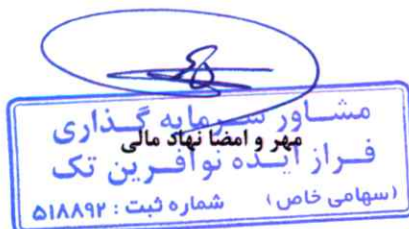 مشاور سرمایه گذاری
مهر و امضا نهاد مالی
فراز ایده نوآفرین تک
(سهامی خاص) شماره ثبت : ۵۱۸۸۹۲